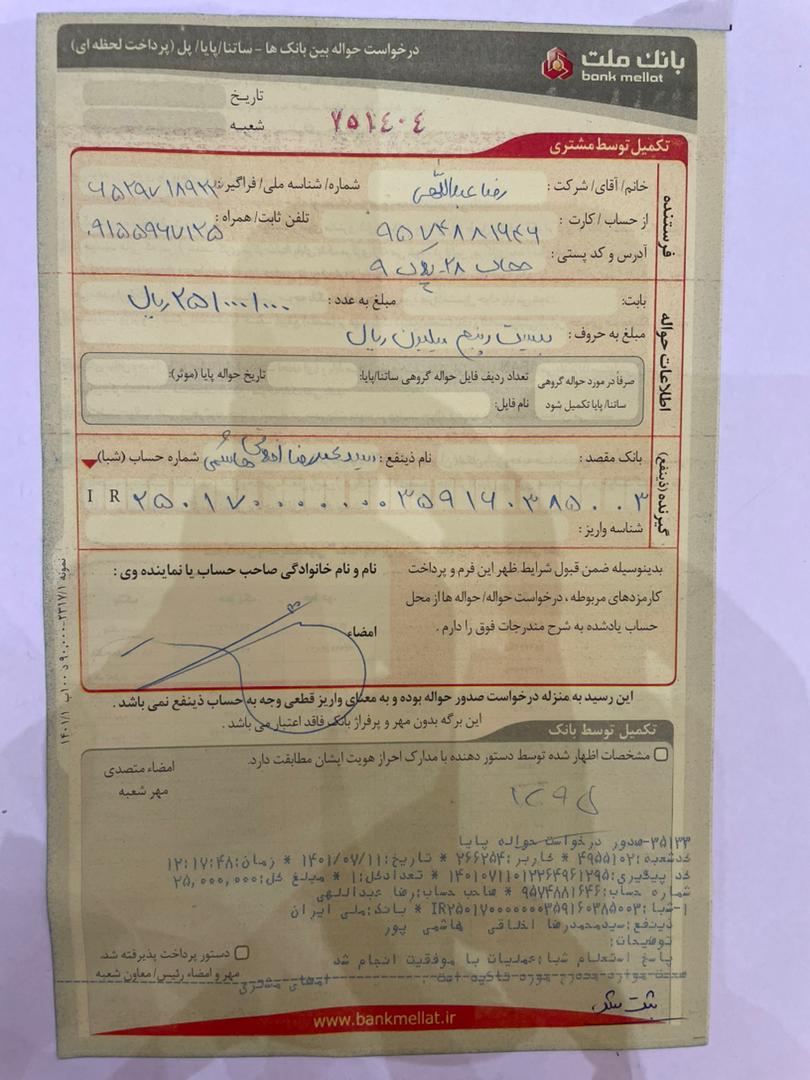 بانک ملت
bank mellat
درخواست حواله بین بانک ها - ساتنا/پایا/ پل (پرداخت لحظه ای)
تاریخ
شعبه
۷۵۱۴۰۴
تکمیل توسط مشتری
فرستنده
خانم/ آقای/ شرکت : رضا عبداللهی شماره/ شناسه ملی/ فراگیر:
از حساب / کارت : ۹۵۷۴۸۸۱۶۴۶ تلفن ثابت/ همراه : ۰۹۱۵۵۹۶۷۱۲۵
آدرس و کد پستی : ۲۸ پلاک ۹
اطلاعات حواله
بابت: مبلغ به عدد : ۲۵/۰۰۰/۰۰۰ ریال
مبلغ به حروف : بیست و پنج میلیون ریال
صرفاً در مورد حواله گروهی ساتنا/ پایا تکمیل شود
تعداد ردیف فایل حواله گروهی ساتنا/پایا: تاریخ حواله پایا (موثر):
نام فایل:
گیرنده (ذینفع)
بانک مقصد : نام ذینفع : سید محمدرضا اخلاقی هاشمی شماره حساب (شبا)
I R ۲۵۰۱۷۰۰۰۰۰۰۰۳۵۹۱۶۰۳۸۵۰۰۳
شناسه واریز :
بدینوسیله ضمن قبول شرایط ظهر این فرم و پرداخت
کارمزدهای مربوطه ، درخواست حواله/ حواله ها از محل
حساب یادشده به شرح مندرجات فوق را دارم .
نام و نام خانوادگی صاحب حساب یا نماینده وی :
امضاء
این رسید به منزله درخواست صدور حواله بوده و به معنای واریز قطعی وجه به حساب ذینفع نمی باشد .
این برگه بدون مهر و پرفراژ بانک فاقد اعتبار می باشد .
تکمیل توسط بانک
مشخصات اظهار شده توسط دستور دهنده با مدارک احراز هویت ایشان مطابقت دارد.
امضاء متصدی
مهر شعبه
۳۵۱۳۳-صدور درخواست حواله پایا
کدشعبه:۴۹۵۵۱۰۲ * کاربر:۲۶۶۲۵۴ * تاریخ:۱۴۰۱/۰۷/۱۱ * زمان:۱۲:۱۷:۴۸
کد پیگیری:۱۴۰۱۰۷۱۱۰۱۲۲۶۴۹۶۱۲۹۵ * تعدادکل:۱ * مبلغ کل:۲۵,۰۰۰,۰۰۰
شماره حساب:۹۵۷۴۸۸۱۶۴۶ * صاحب حساب:رضا عبداللهی
۱-شبا:IR۲۵۰۱۷۰۰۰۰۰۰۰۳۵۹۱۶۰۳۸۵۰۰۳ * بانک:ملی ایران
ذینفع:سیدمحمدرضا اخلاقی هاشمی پور
توضیحات:
پاسخ استعلام شبا:عملیات با موفقیت انجام شد
امضای مشتری
دستور پرداخت پذیرفته شد.
مهر و امضاء رئیس/ معاون شعبه
ثبت شد
www.bankmellat.ir